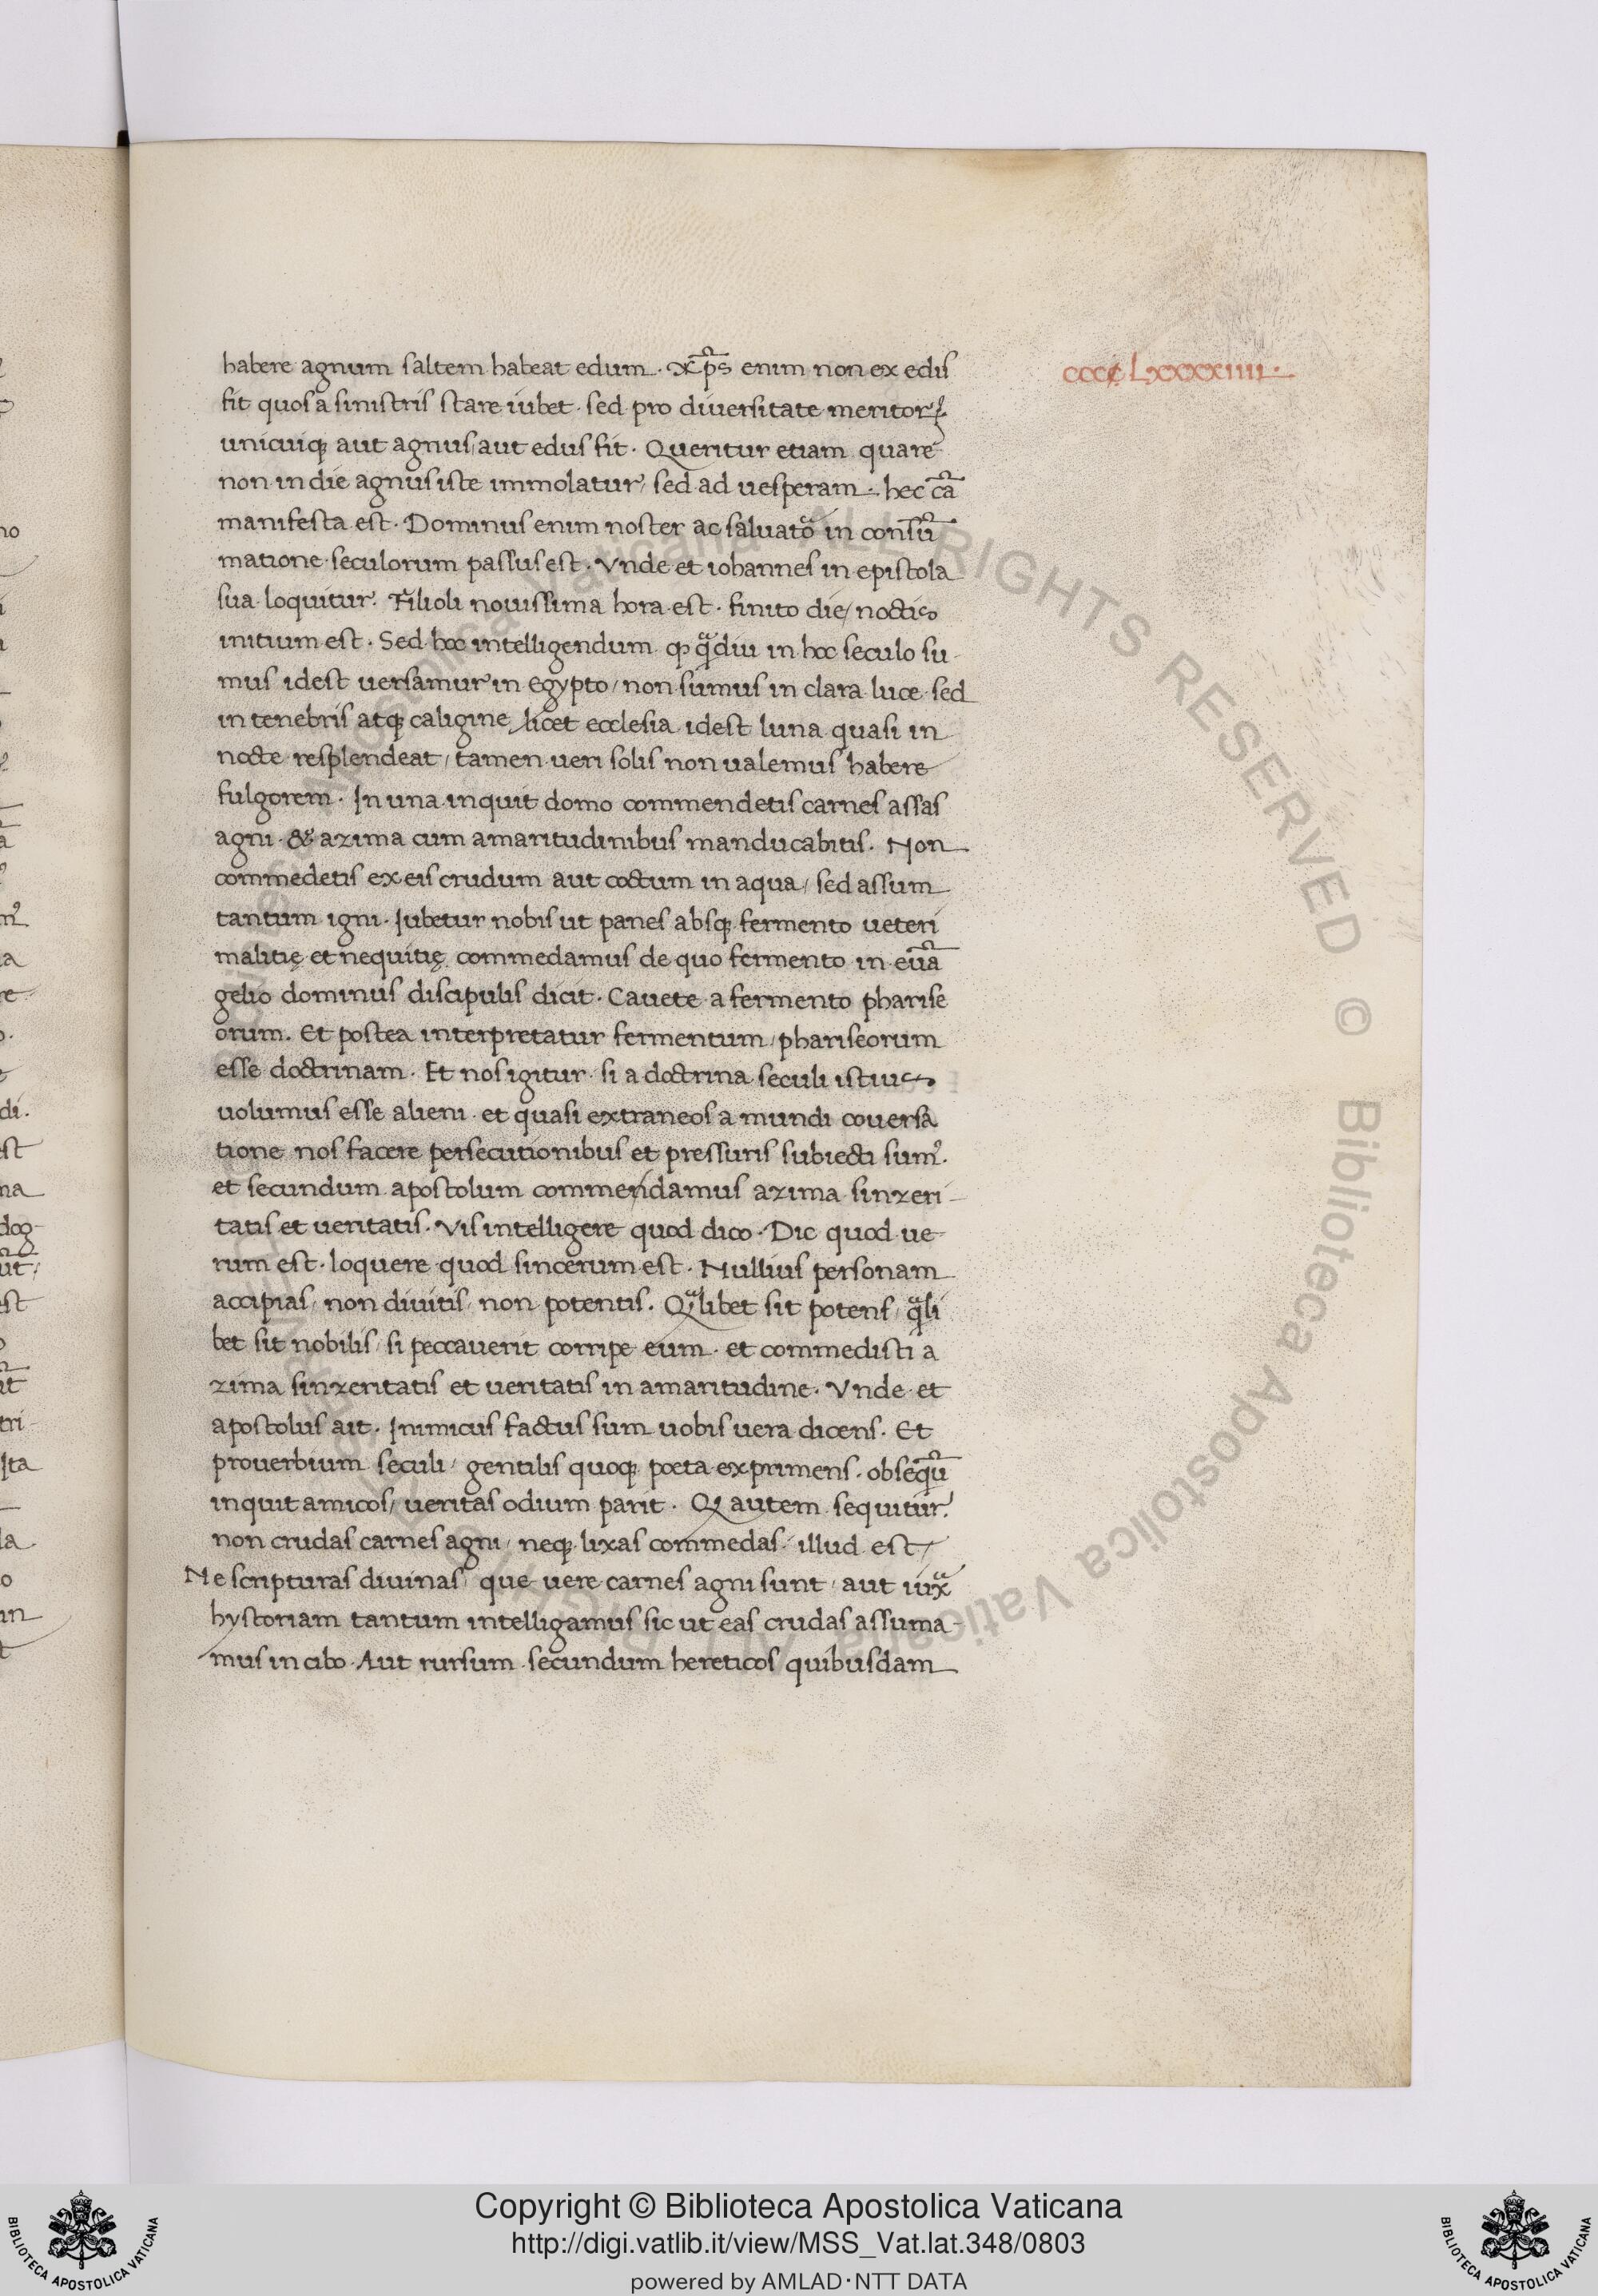 habere agnum saltem habeat edum. xp̄s enim non ex edis
fit quos a sinistris stare iubet. sed pro diuersitate meritoꝝ
unicuiqꝫ aut agnus/ aut edus fit. Queritur etiam quare
non in die agnus iste immolatur/ sed ad uesperam. hec cā
manifesta est. Dominus enim noster ac saluatoͬ in consū
matione seculorum passus est. Vnde et iohannes in epistola
sua loquitur. Filioli nouissima hora est. finito die/ noctis
initium est. Sed hoc intelligendum ꝙ qͣdiu in hoc seculo su
mus idest uersamur in egypto/ non sumus in clara luce sed
in tenebris atqꝫ caligine/ licet ecclesia idest luna quasi in
nocte resplendeat/ tamen ueri solis non ualemus habere
fulgorem. In una inquit domo commendetis carnes assas
agni. & azima cum amaritudinibus manducabitis. Non
commedetis ex eis crudum aut coctum in aqua/ sed assum
tantum igni. Iubetur nobis ut panes absqꝫ fermento ueteri
malitię et nequitię commedamus de quo fermento in euā
gelio dominus discipulis dicit. Cauete a fermento pharise
orum. Et postea interpretatur fermentum/ phariseorum
esse doctrinam. Et nos igitur si a doctrina seculi istius
uolumus esse alieni et quasi extraneos a mundi couersa
tione nos facere persecutionibus et pressuris subiecti sumꝰ.
et secundum apostolum commendamus azima sinzeri-
tatis et ueritatis. Vis intelligere quod dico. Dic quod ue-
rum est. loquere quod sincerum est. Nullius personam
accipias/ non diuitis/ non potentis. Qͣlibet sit potens/ qͣli
bet sit nobilis/ si peccauerit corripe eum. et commedisti a
zima sinzeritatis et ueritatis in amaritudine. Vnde et
apostolus ait. Inimicus factus sum uobis uera dicens. Et
prouerbium seculi/ gentilis quoqꝫ poeta exprimens. obsequiū
inquit amicos/ ueritas odium parit. Qͩ autem sequitur.
non crudas carnes agni/ neqꝫ lixas commedas/ illud est/
Ne scripturas diuinas/ que uere carnes agni sunt/ aut iuxͣ
hystoriam tantum intelligamus sic ut eas crudas assuma-
mus in cibo. Aut rursum secundum hereticos quibusdam
ccccLxxxxiiii.
Copyright © Biblioteca Apostolica Vaticana
http://digi.vatlib.it/view/MSS_Vat.lat.348/0803
powered by AMLAD·NTT DATA
BIBLIOTECA APOSTOLICA VATICANA
BIBLIOTECA APOSTOLICA VATICANA